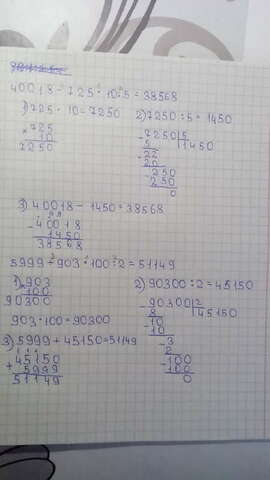 40018 - 725 · 10 : 5 = 38568
1) 725 · 10 = 7250 2) 7250 : 5 = 1450
× 725
10
7250
- 7250 | 5
5 | 1450
- 22
20
- 250
250
0
3) 40018 - 1450 = 38568
- 40018
1450
38568
5999 + 903 · 100 : 2 = 51149
1) 903 2) 90300 : 2 = 45150
× 100
90300
903 · 100 = 90300
- 90300 | 2
8 | 45150
- 10
10
- 3
2
- 100
100
0
3) 5999 + 45150 = 51149
+ 45150
5999
51149